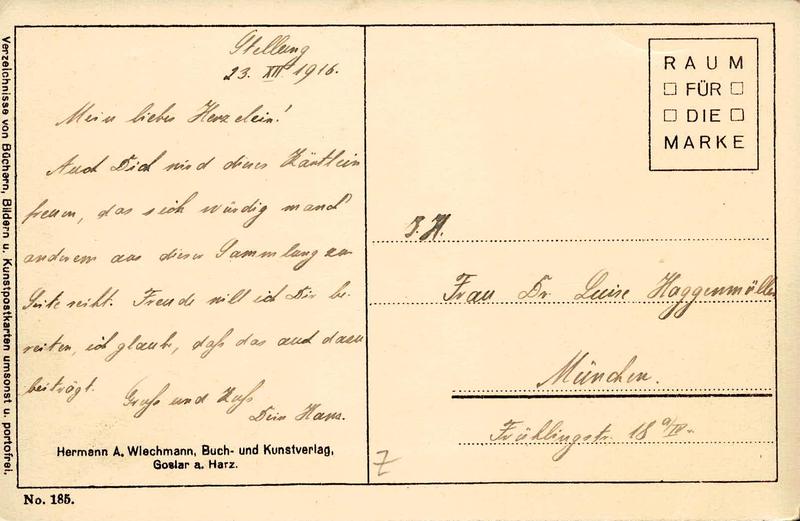 Stellung
23. XII 1916.
Mein liebes Herzelein!
Auch Dich wird dieses Kärtlein
freuen, das sich würdig manch
anderem aus dieser Sammlung zur
Seite reiht. Freude will ich Dir be-
reiten, ich glaube, daß das auch dazu
beiträgt.
Gruß und Kuß
Dein Hans.
Hermann A. Wiechmann, Buch- und Kunstverlag,
Goslar a. Harz.
No. 185.
Verzeichnisse von Büchern, Bildern u. Kunstpostkarten umsonst u. portofrei.
RAUM
FÜR
DIE
MARKE
Frau Dr. Luise Haggenmüller
München.
Frühlingstr. 18